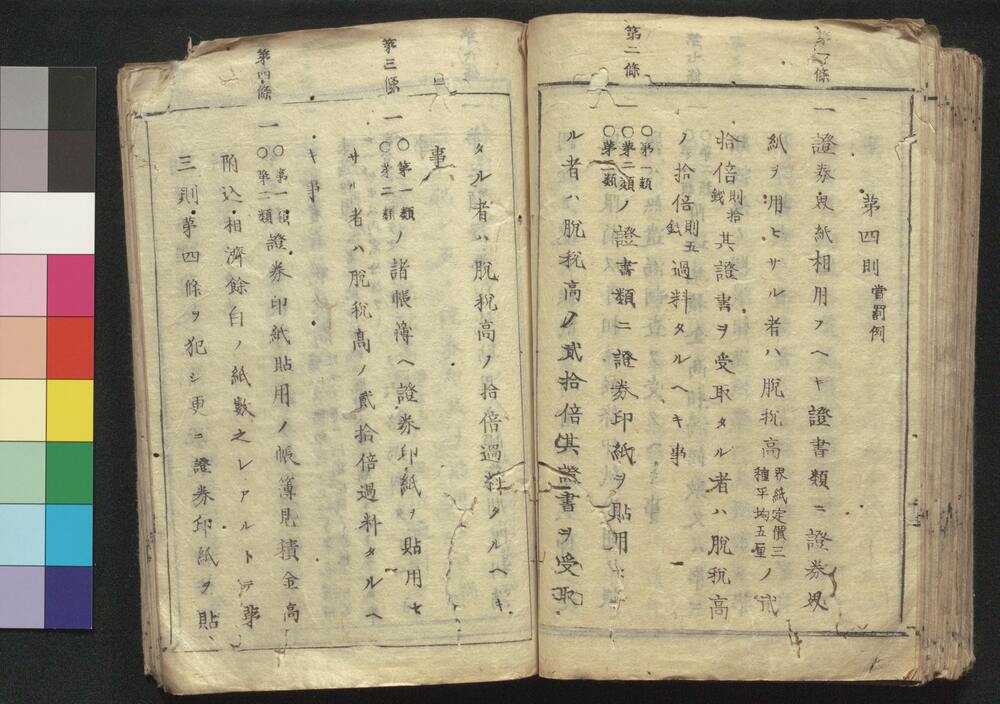 第四則 賞罰例
第一條
一 證券界紙相用フヘキ證書類ニ證券界
紙ヲ用ヒサル者ハ脫稅高 界紙定價三種平均五厘 ノ貳
拾倍 則拾錢 其證書ヲ受取タル者ハ脫稅高
ノ拾倍 則五錢 過料タルヘキ事
第二條
一 ○第一類○第二類○第三類 ノ證書類ニ證券印紙ヲ貼用セサ
ル者ハ脫稅高ノ貳拾倍其證書ヲ受取
タル者ハ脫稅高ノ拾倍過料タルヘキ
事
第三條
一 ○第一類○第二類 ノ諸帳簿ヘ證券印紙ヲ貼用セ
サル者ハ脫稅高ノ貳拾倍過料タルヘ
キ事
第四條
一 ○第一類○第二類 證券印紙貼用ノ帳簿見積金高
附込相濟餘白ノ紙數之レアルトテ第
三則第四條ヲ犯シ更ニ證券印紙ヲ貼